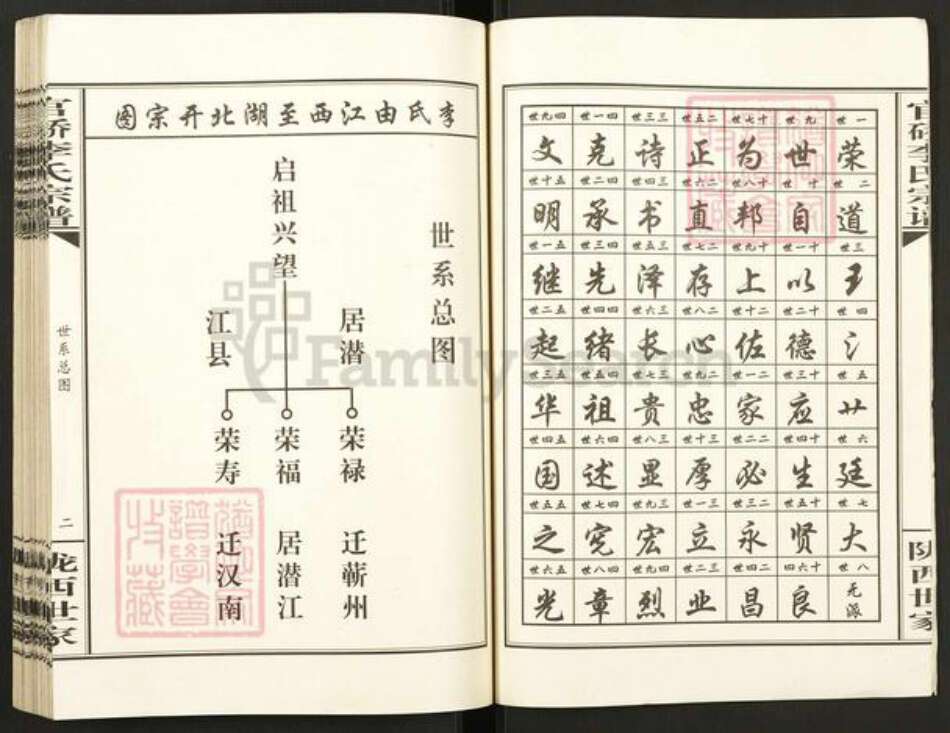 官硚李氏宗谱
陇西世家
一世 荣
二世 道
三世 玉
四世 氵
五世 廿
六世 廷
七世 大
八世 无派
九世 世
十世 自
十一世 以
十二世 德
十三世 应
十四世 生
十五世 贤
良
十七世 为
十八世 邦
十九世 上
二十世 佐
二一世 家
二二世 必
二三世 永
二四世 昌
二五世 正
二六世 直
二七世 存
二八世 心
二九世 忠
三十世 厚
三一世 立
三二世 业
三三世 诗
三四世 书
三五世 泽
三六世 长
三七世 贵
三八世 显
三九世 宏
四十世 烈
四一世 克
四二世 承
四三世 先
四四世 绪
四五世 祖
四六世 述
四七世 宪
四八世 章
四九世 文
五十世 明
五一世 继
五二世 起
五三世 华
五四世 国
五五世 之
五六世 光
李氏由江西至湖北开宗图
世系总图
启祖兴望
居潜
江县
荣禄 迁蕲州
荣福 居潜江
荣寿 迁汉南
官硚李氏宗谱
世系总图
二
陇西世家
FamilySearch